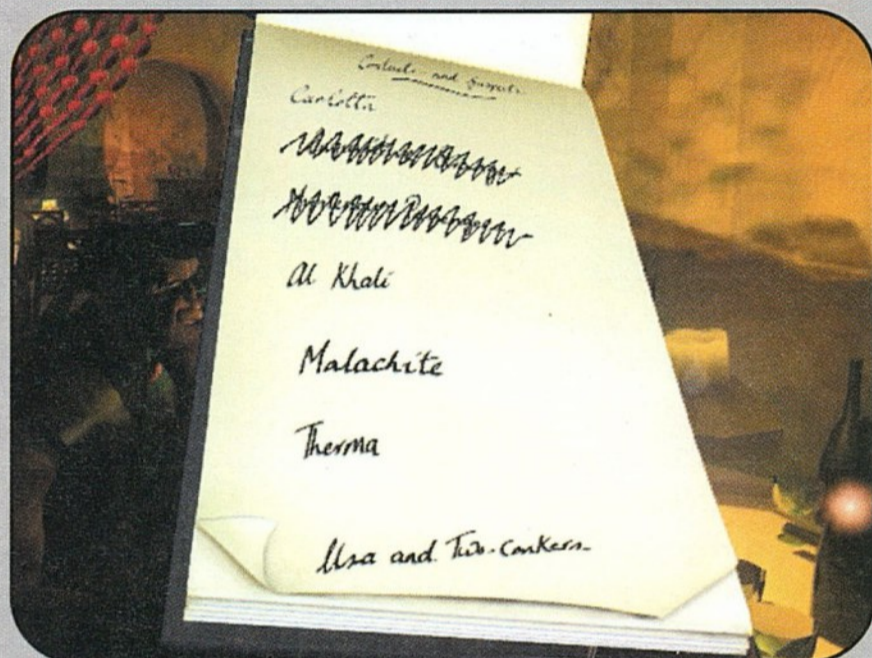 Contacts and Suspects
Carlotta
Al Khali
Malachite
Therma
Usa and Two-Conkers